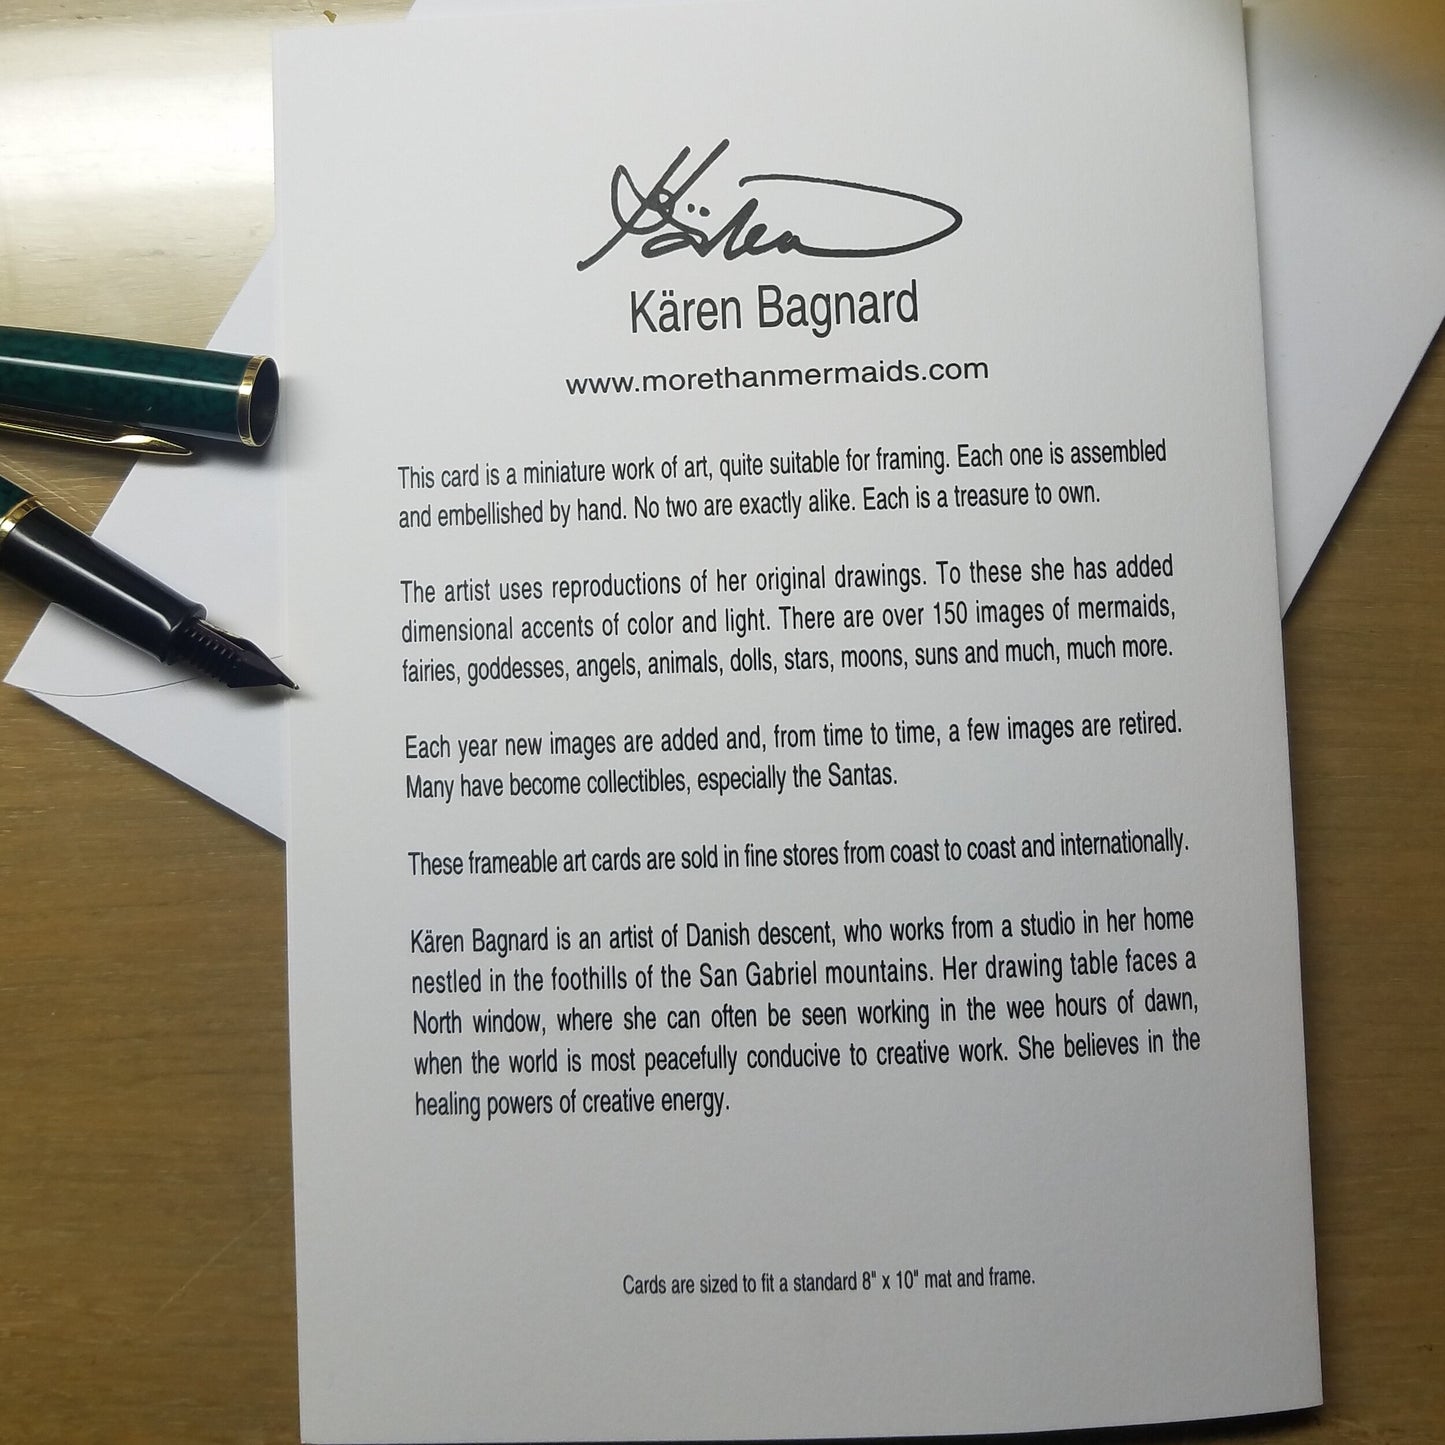 Kären
Kären Bagnard
www.morethanmermaids.com
This card is a miniature work of art, quite suitable for framing. Each one is assembled
and embellished by hand. No two are exactly alike. Each is a treasure to own.
The artist uses reproductions of her original drawings. To these she has added
dimensional accents of color and light. There are over 150 images of mermaids,
fairies, goddesses, angels, animals, dolls, stars, moons, suns and much, much more.
Each year new images are added and, from time to time, a few images are retired.
Many have become collectibles, especially the Santas.
These frameable art cards are sold in fine stores from coast to coast and internationally.
Kären Bagnard is an artist of Danish descent, who works from a studio in her home
nestled in the foothills of the San Gabriel mountains. Her drawing table faces a
North window, where she can often be seen working in the wee hours of dawn,
when the world is most peacefully conducive to creative work. She believes in the
healing powers of creative energy.
Cards are sized to fit a standard 8" x 10" mat and frame.